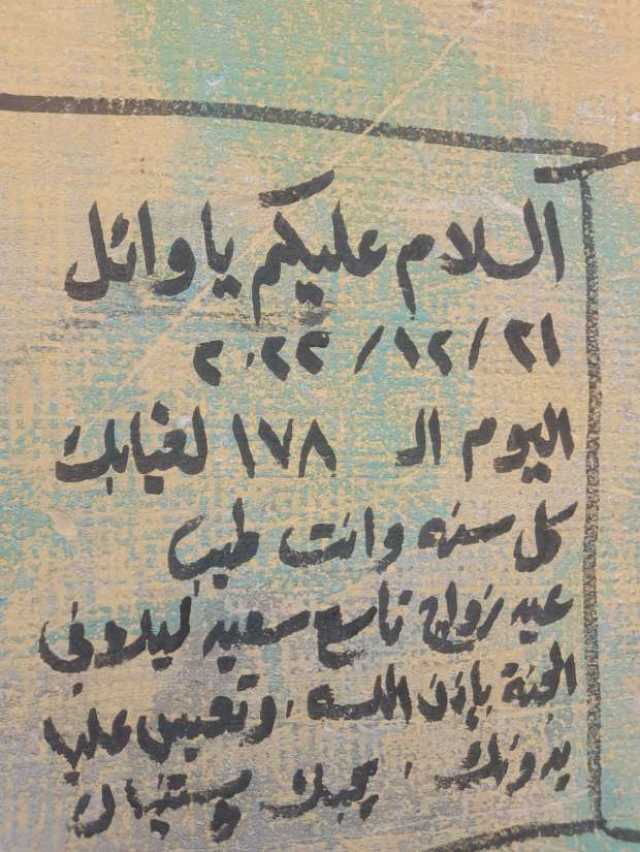 السلام عليكم يا وائل
٢٠٢٢/١٢/٢١
اليوم الـ ١٧٨ لغيابك
كل سنه وانت طيب
عيد زواج تاسع سعيد ليك وفي
الجنة بإذن الله ، وتعيس عليا
بدونك ، بحبك